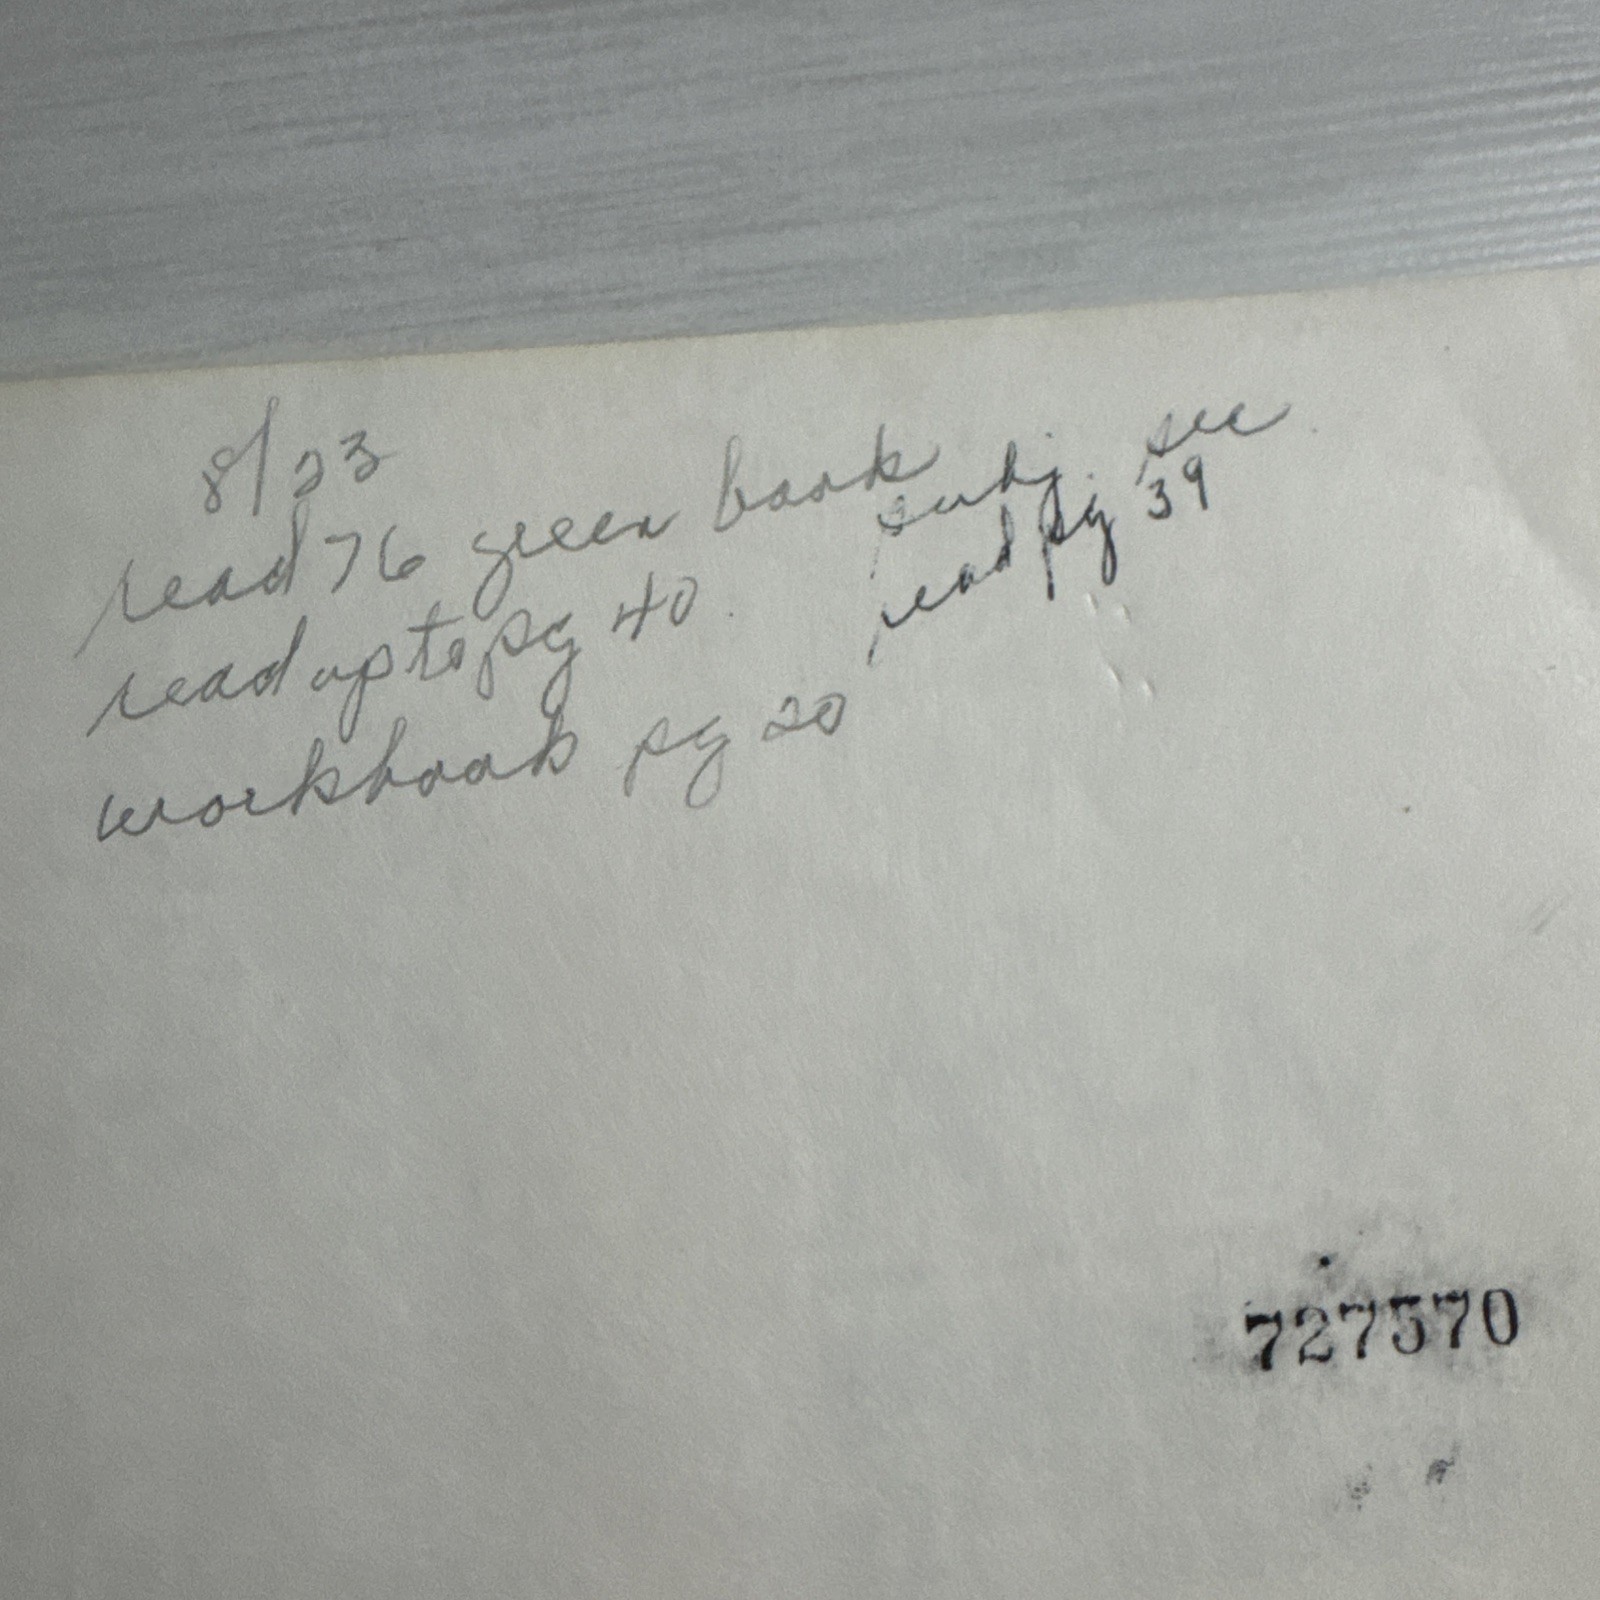 8/23
read 76 green book
read up to pg 40.
workbook pg 20
subj. see
read pg 39
727570